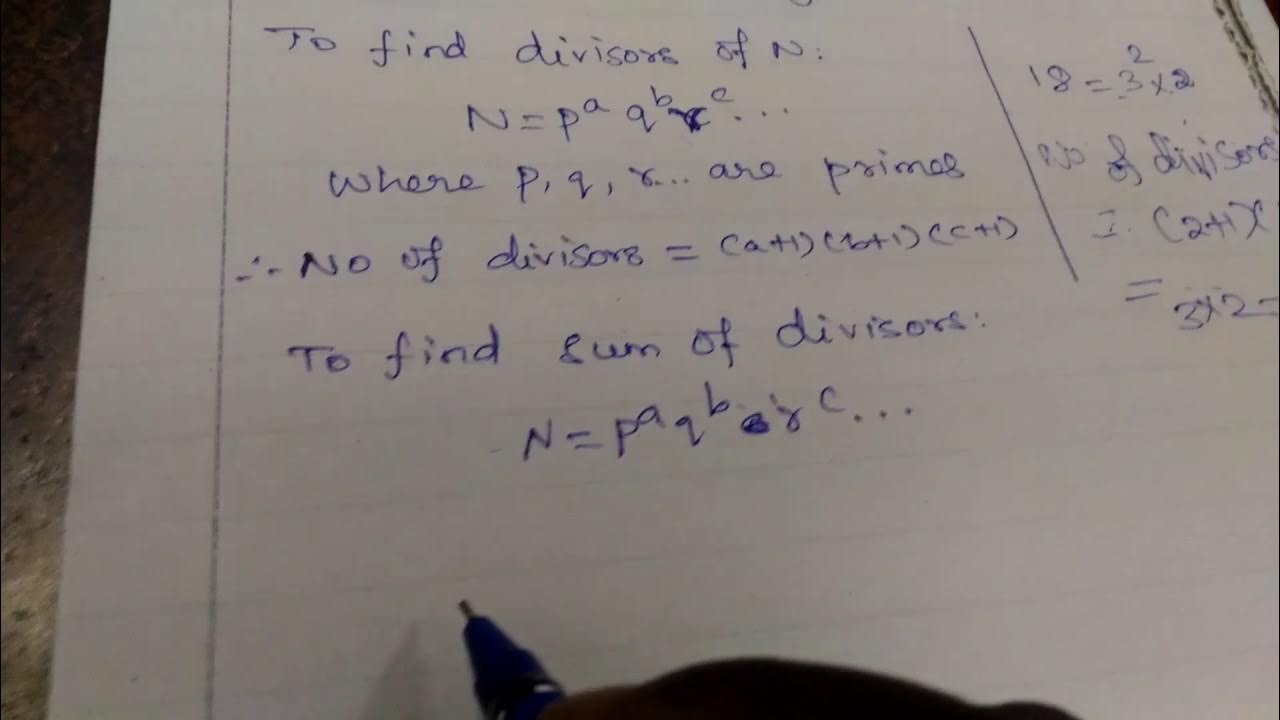 To find divisors of N:
N = p^a q^b r^c ...
where p, q, r... are primes
∴ No of divisors = (a+1)(b+1)(c+1)
To find sum of divisors:
N = p^a q^b r^c ...
18 = 3^2 × 2
No of divisors
(2+1)(
= 3×2 =